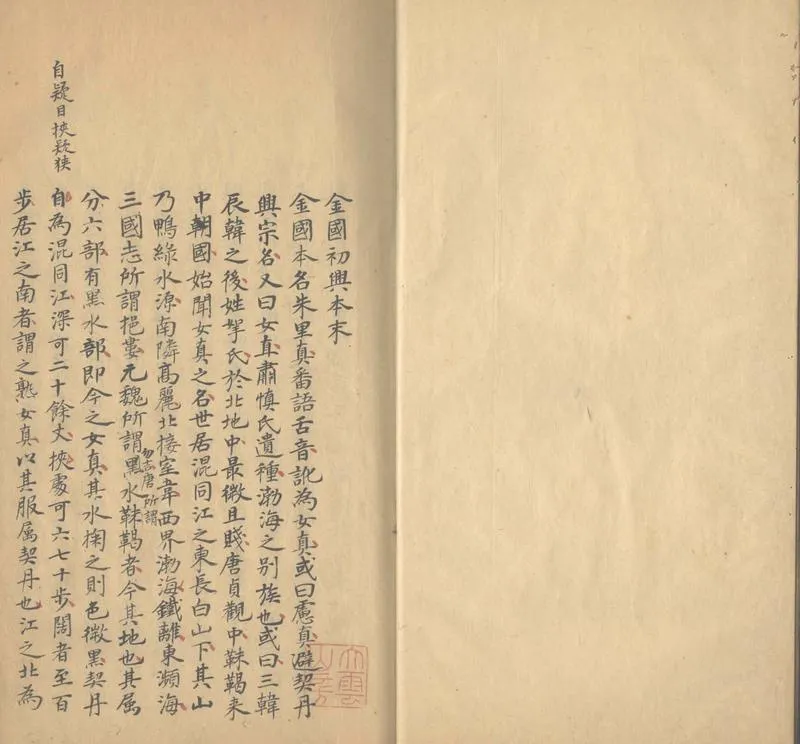 金國初興本末
金國本名朱里真番語舌音訛為女真或曰慮真避契丹
興宗名又曰女直肅慎氏遺種渤海之別族也或曰三韓
辰韓之後姓拏氏於北地中最微且賤唐貞觀中靺鞨来
中朝國始聞女真之名世居混同江之東長白山下其山
乃鴨綠水源南隣高麗北接室韋西界渤海鐵離東瀕海
三國志所謂挹婁元魏所謂勿吉唐所謂黑水靺鞨者今其地也其属
分六部有黑水部即今之女真其水掬之則色微黑契丹
自為混同江深可二十餘丈挾處可六七十步闊者至百
步居江之南者謂之熟女真以其服属契丹也江之北為
自疑目挾疑狹